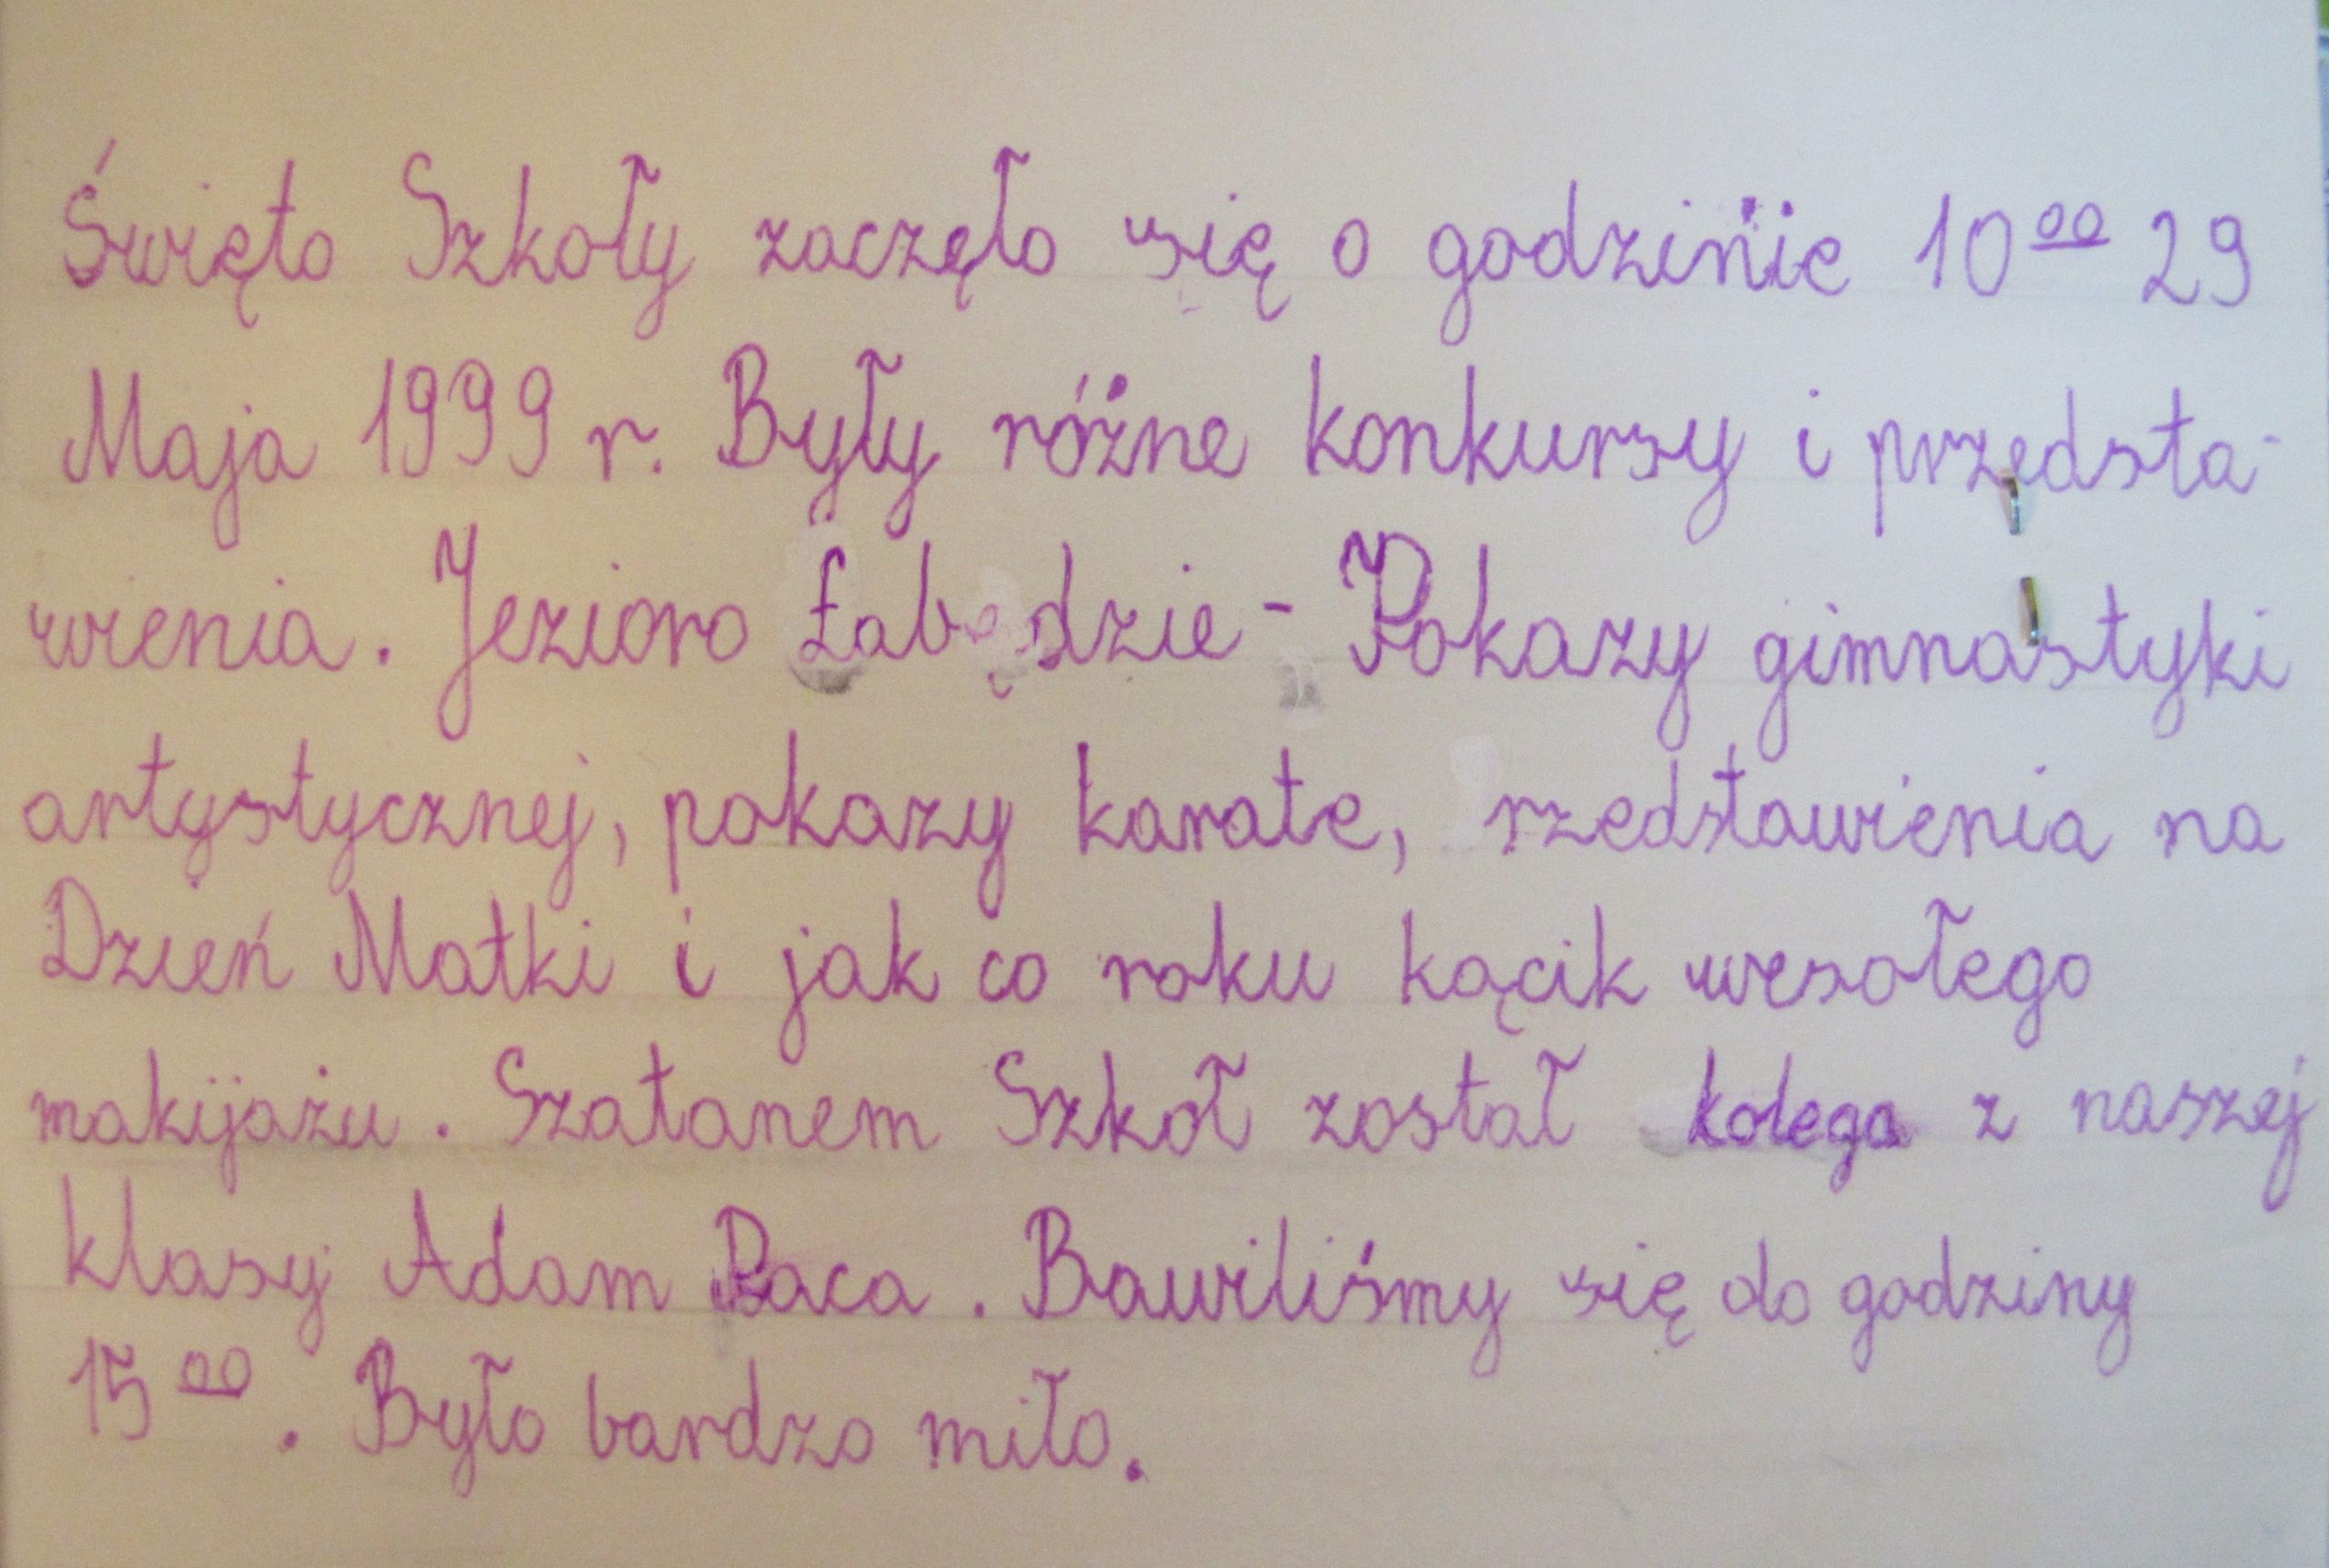 Święto Szkoły zaczęło się o godzinie 10⁰⁰ 29
Maja 1999 r. Były różne konkursy i przedsta-
wienia. Jezioro Łabędzie - Pokazy gimnastyki
artystycznej, pokazy karate, rzedstawienia na
Dzień Matki i jak co roku kącik wesołego
makijażu. Szatanem Szkoł został kolega z naszej
klasy Adam Paca. Bawiliśmy się do godziny
15⁰⁰. Było bardzo miło.